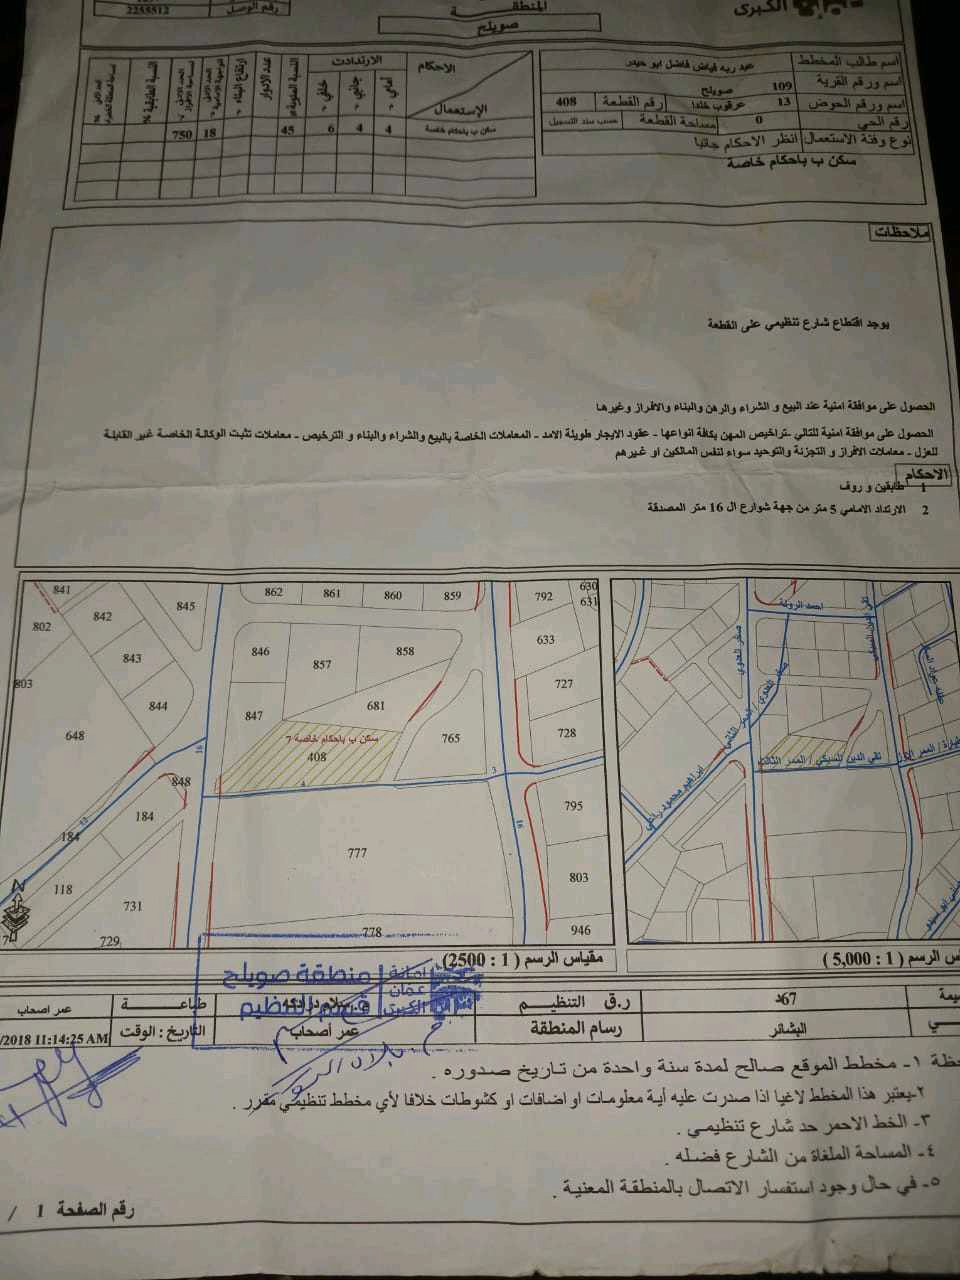 الكبرى
المنطقة
صويلح
رقم الوصل 2255512
اسم طالب المخطط عبد ربه فياض فاضل ابو حيدر
اسم ورقم القرية 109 صويلح
اسم ورقم الحوض 13 عرقوب خلدا رقم القطعة 408
رقم الحي 0 مساحة القطعة حسب سند التسجيل
نوع وفئة الاستعمال انظر الاحكام جانبا
سكن ب باحكام خاصة
الاحكام
الإستعمال
الارتدادت
أمامي
جانبي
خلفي
النسبة المئوية
عدد الادوار
ارتفاع البناء
النسبة الطابقية %
سكن ب باحكام خاصة 4 4 6 45 18 750
ملاحظات
يوجد اقتطاع شارع تنظيمي على القطعة
الحصول على موافقة امنية عند البيع و الشراء والرهن والبناء والافراز وغيرها
الحصول على موافقة امنية للتالي -تراخيص المهن بكافة انواعها - عقود الايجار طويلة الامد - المعاملات الخاصة بالبيع والشراء والبناء و الترخيص - معاملات تثبت الوكالة الخاصة غير القابلة
للعزل - معاملات الافراز و التجزئة والتوحيد سواء لنفس المالكين او غيرهم
الاحكام
1 طابقين و روف
2 الارتداد الامامي 5 متر من جهة شوارع ال 16 متر المصدقة
841
842
845
862
861
860
859
792
630
631
802
843
846
857
858
633
803
844
847
681
727
648
سكن ب باحكام خاصة 7
408
765
728
16
848
4
3
184
184
12
16
795
777
118
803
731
729
778
946
N
احمد الرولة
صقر العدوي
صقر العدوي / الممر الثاني
تقي الدين السبكي / الممر الثالث
ابراهيم محمود راغي
مقياس الرسم ( 1 : 2500)
الرسم ( 1 : 5,000 )
67د
ر.ق التنظيم
طباعة
عمر اصحاب
البشائر
رسام المنطقة
عمر أصحاب
التاريخ : الوقت
/2018 11:14:25 AM
امانة
عمان
الكبرى
منطقة صويلح
قسم التنظيم
١- مخطط الموقع صالح لمدة سنة واحدة من تاريخ صدوره .
٢-يعتبر هذا المخطط لاغيا اذا صدرت عليه أية معلومات او اضافات او كشوطات خلافا لأي مخطط تنظيمي مقرر .
٣- الخط الاحمر حد شارع تنظيمي .
٤- المساحة الملغاة من الشارع فضله .
٥- في حال وجود استفسار الاتصال بالمنطقة المعنية .
رقم الصفحة 1 /